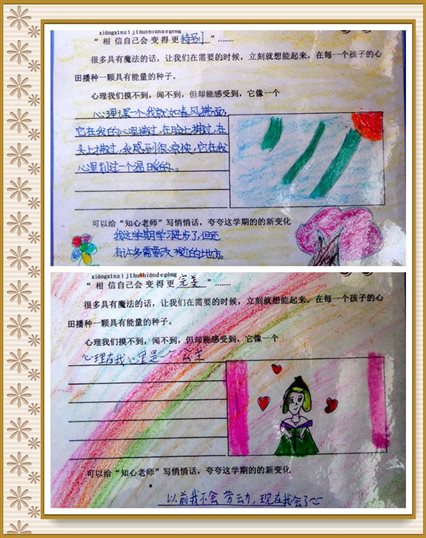 xiāngxìnzìjǐhuìbiàndegèng
“相信自己会变得更特别”……
很多具有魔法的话，让我们在需要的时候，立刻就想能起来，在每一个孩子的心
田播种一颗具有能量的种子。
心理我们摸不到，闻不到，但却能感受到，它像一个
心理课一个我就如春风拂面，
它在我的心里拂过，在脸上拂过，在
头上拂过，我感到很爽快，它在我
心里刮过一个温暖的。
可以给“知心老师”写悄悄话，夸夸这学期的的新变化
我这学期学习进步了，但还
有许多需要改进的地方
xiāngxìnzìjǐhuìbiàndegèng
“相信自己会变得更完美”……
很多具有魔法的话，让我们在需要的时候，立刻就想能起来，在每一个孩子的心
田播种一颗具有能量的种子。
心理我们摸不到，闻不到，但却能感受到，它像一个
心理在我心里是一个公主
可以给“知心老师”写悄悄话，夸夸这学期的的新变化
以前我不会劳动，现在我会了